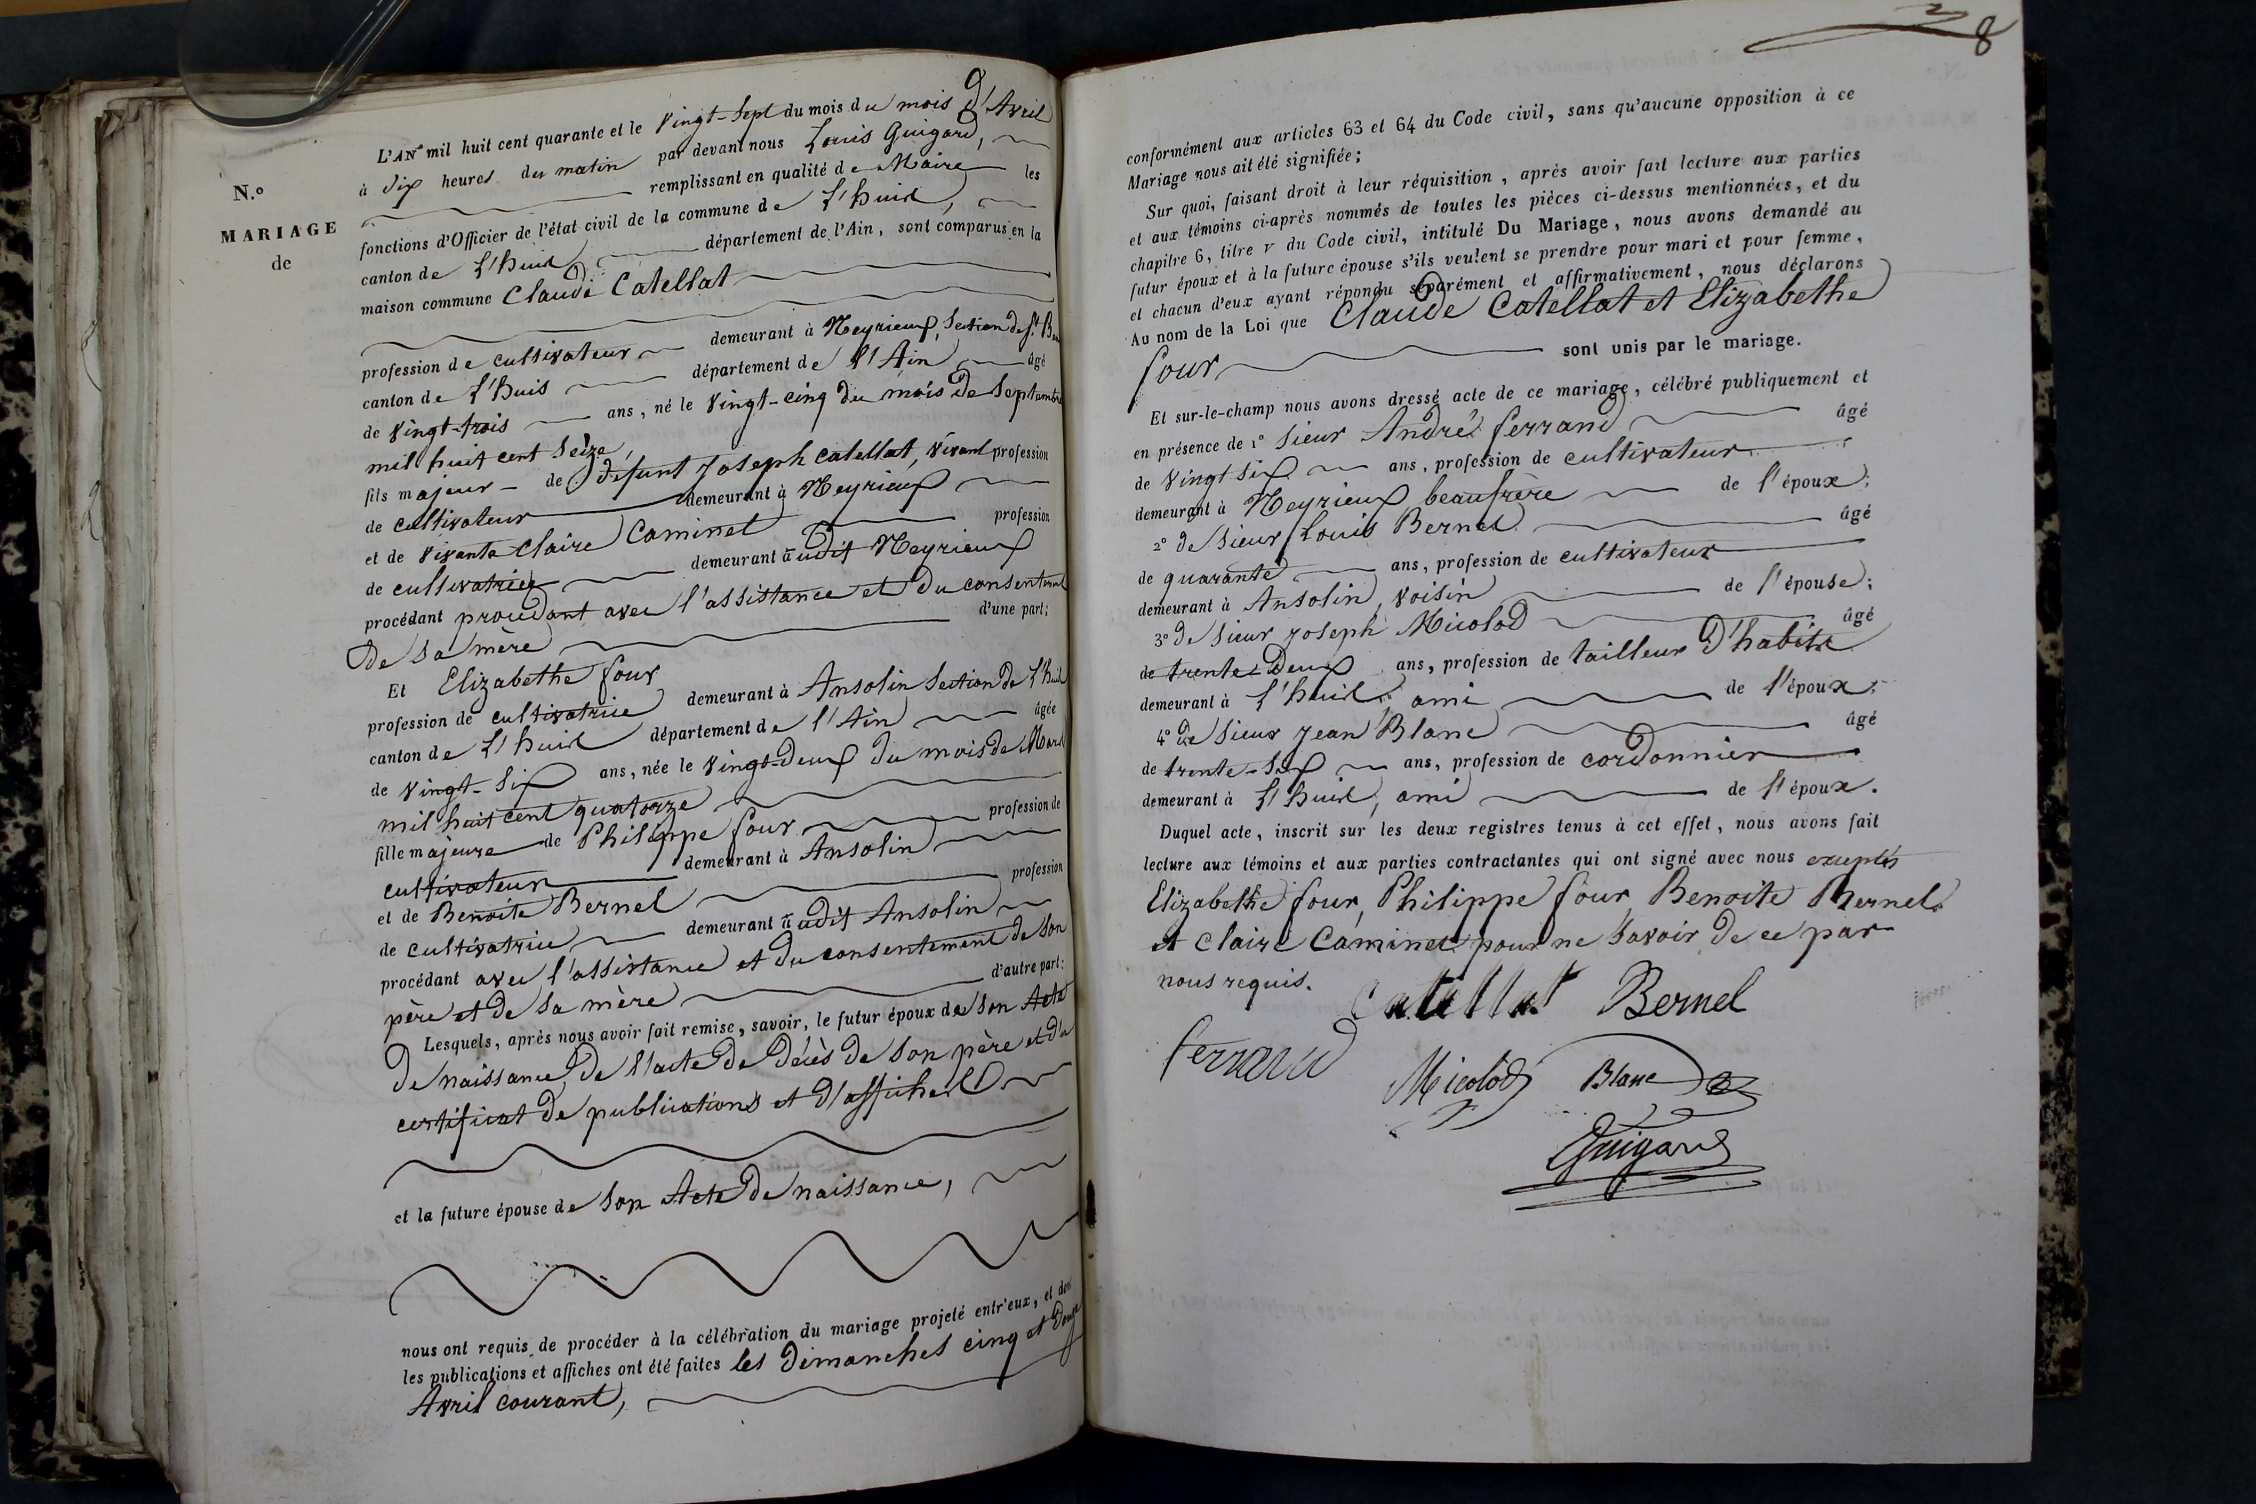 N.º
MARIAGE
de
L'AN mil huit cent quarante et le Vingt-Sept du mois du mois d'Avril
à dix heures du matin par devant nous Louis Guigard,
remplissant en qualité de Maire les
fonctions d'Officier de l'état civil de la commune de L'huis,
canton de L'huis département de l'Ain, sont comparus en la
maison commune Claude Catellat
profession de cultivateur demeurant à Neyrieux, Section de St B
canton de L'huis département de l'Ain âgé
de Vingt-trois ans, né le Vingt-cinq du mois de Septembre
mil huit cent Seize,
fils majeur de défunt Joseph Catellat, Vivant profession
de cultivateur demeurant à Neyrieux
et de vivante Claire Caminet profession
de cultivatrice demeurant audit Neyrieux
procédant procédant avec l'assistance et du consentement
de sa mère d'une part;
Et Elizabethe four
profession de cultivatrice demeurant à Ansolin Section de L'huis
canton de L'huis département de l'Ain âgée
de Vingt-Six ans, née le Vingt-deux du mois de Mars
mil huit cent quatorze
fille majeure de Philippe four profession de
cultivateur demeurant à Ansolin
et de Benoite Bernel profession
de cultivatrice demeurant audit Ansolin
procédant avec l'assistance et du consentement de son
père et de sa mère d'autre part:
Lesquels, après nous avoir fait remise, savoir, le futur époux de son Acte
de naissance, de l'acte de décès de son père et d'u
certificat de publications et d'affiches
et la future épouse de son Acte de naissance,
nous ont requis de procéder à la célébration du mariage projeté entr'eux, et dont
les publications et affiches ont été faites les dimanches cinq et douze
Avril courant,
8
conformément aux articles 63 et 64 du Code civil, sans qu'aucune opposition à ce
Mariage nous ait été signifiée;
Sur quoi, faisant droit à leur réquisition, après avoir fait lecture aux parties
et aux témoins ci-après nommés de toutes les pièces ci-dessus mentionnées, et du
chapitre 6, titre v du Code civil, intitulé Du Mariage, nous avons demandé au
futur époux et à la future épouse s'ils veulent se prendre pour mari et pour femme,
et chacun d'eux ayant répondu séparément et affirmativement, nous déclarons
Au nom de la Loi que Claude Catellat et Elizabethe
four sont unis par le mariage.
Et sur-le-champ nous avons dressé acte de ce mariage, célébré publiquement et
en présence de 1º Sieur André ferrand âgé
de Vingt Six ans, profession de cultivateur
demeurant à Neyrieux beaufrère de l'époux;
2º de Sieur Louis Bernel âgé
de quarante ans, profession de cultivateur
demeurant à Ansolin, voisin de l'épouse;
3º de Sieur Joseph Micolod âgé
de trente-deux ans, profession de tailleur d'habits
demeurant à L'huis, ami de l'époux;
4º de Sieur Jean Blanc âgé
de trente-Six ans, profession de cordonnier
demeurant à L'huis, ami de l'époux.
Duquel acte, inscrit sur les deux registres tenus à cet effet, nous avons fait
lecture aux témoins et aux parties contractantes qui ont signé avec nous exceptés
Elizabethe four, Philippe four, Benoite Bernel
et Claire Caminet pour ne savoir de ce par
nous requis.
Catellat Bernel
ferrand
Micolod Blanc
Guigard